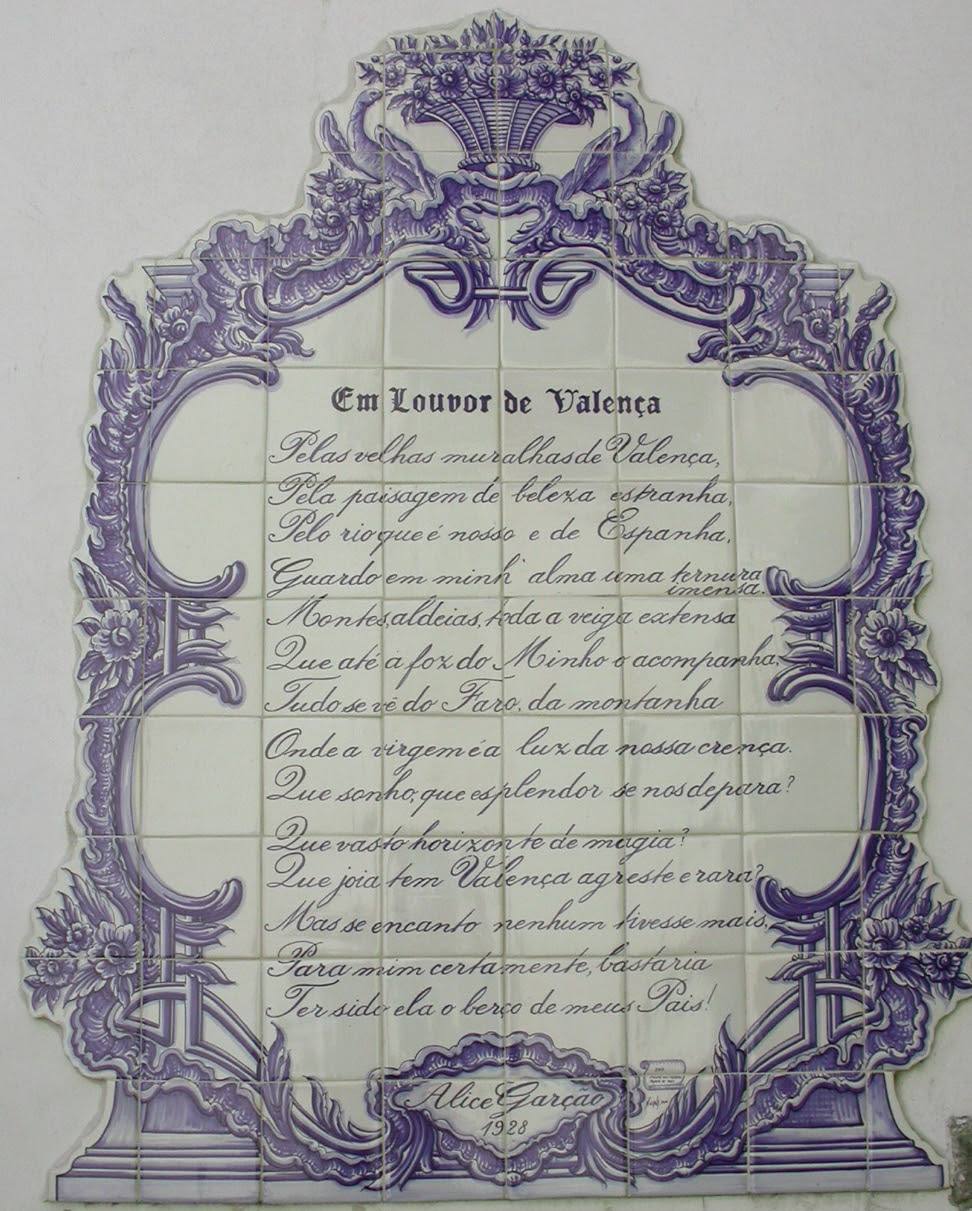 Em Louvor de Valença
Pelas velhas muralhas de Valença,
Pela paisagem de beleza estranha,
Pelo rio que é nosso e de Espanha,
Guardo em minh' alma uma ternura
imensa.
Montes, aldeias, toda a veiga extensa
Que até à foz do Minho o acompanha,
Tudo se vê do Faro, da montanha
Onde a virgem é a luz da nossa crença.
Que sonho, que esplendor se nos depara?
Que vasto horizonte de magia?
Que joia tem Valença agreste e rara?
Mas se encanto nenhum tivesse mais,
Para mim certamente, bastaria
Ter sido ela o berço de meus Pais!
Alice Garção
1928